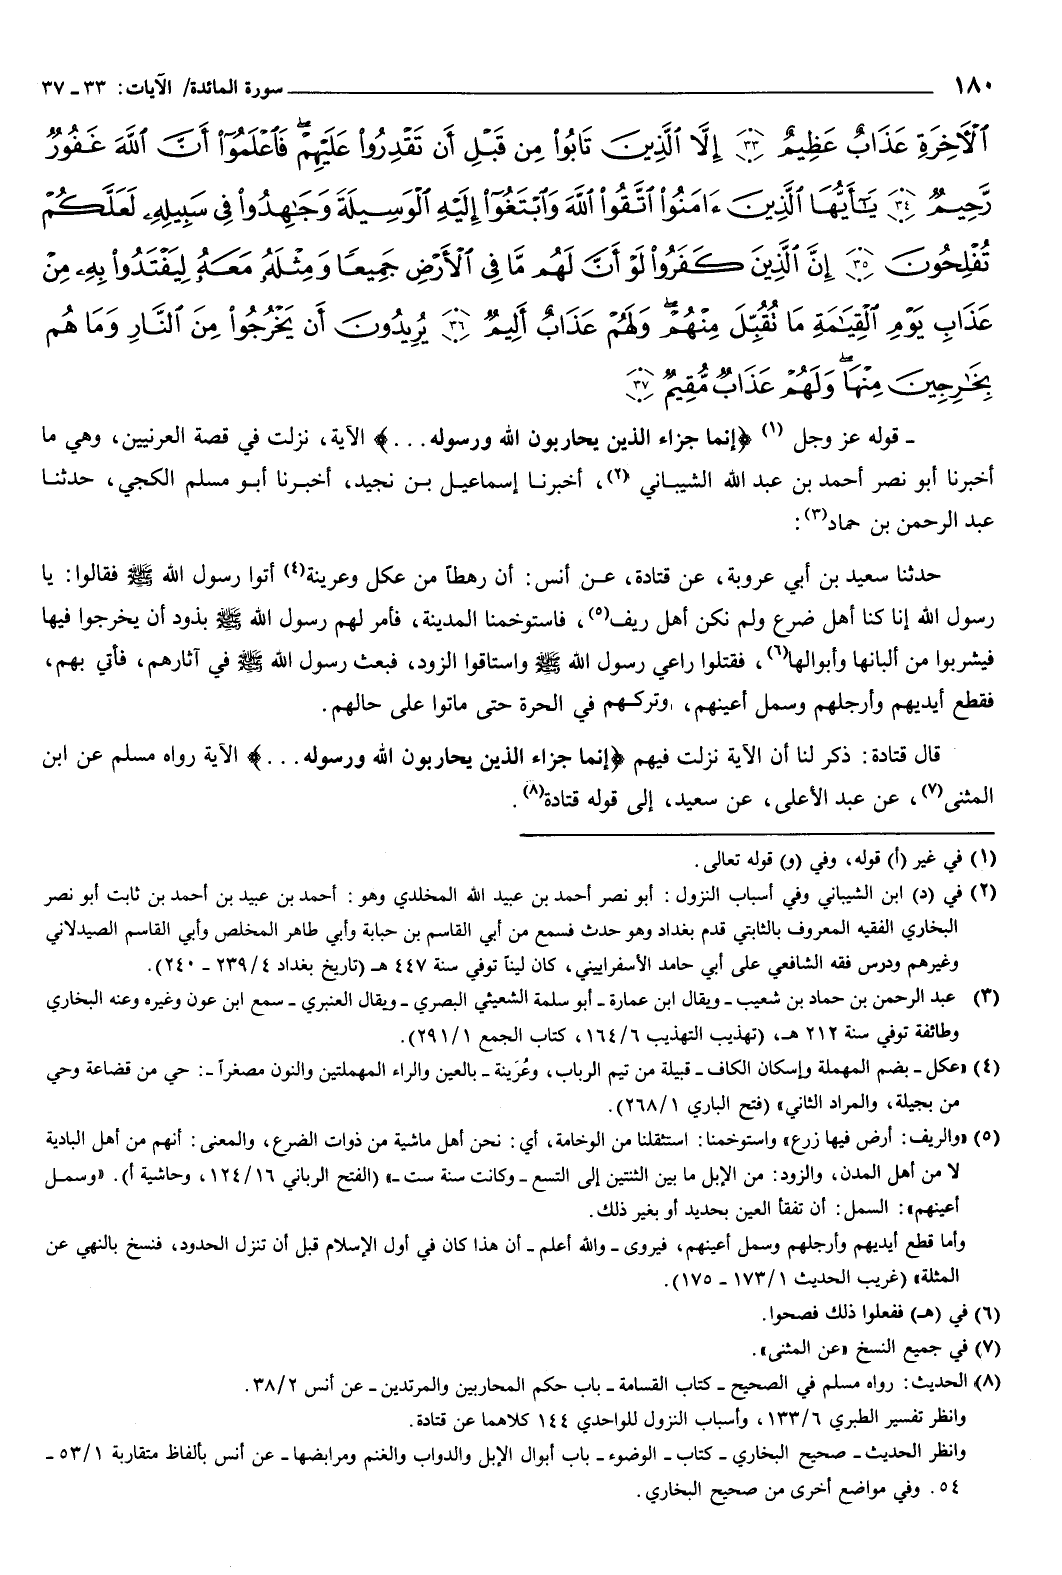 ١٨٠ سورة المائدة/ الآيات: ٣٣ ـ ٣٧
ٱلْأَخِرَةِ عَذَابٌ عَظِيمٌ ۝٣٣ إِلَّا ٱلَّذِينَ تَابُوا۟ مِن قَبْلِ أَن تَقْدِرُوا۟ عَلَيْهِمْ ۖ فَٱعْلَمُوٓا۟ أَنَّ ٱللَّهَ غَفُورٌ
رَّحِيمٌ ۝٣٤ يَـٰٓأَيُّهَا ٱلَّذِينَ ءَامَنُوا۟ ٱتَّقُوا۟ ٱللَّهَ وَٱبْتَغُوٓا۟ إِلَيْهِ ٱلْوَسِيلَةَ وَجَـٰهِدُوا۟ فِى سَبِيلِهِۦ لَعَلَّكُمْ
تُفْلِحُونَ ۝٣٥ إِنَّ ٱلَّذِينَ كَفَرُوا۟ لَوْ أَنَّ لَهُم مَّا فِى ٱلْأَرْضِ جَمِيعًا وَمِثْلَهُۥ مَعَهُۥ لِيَفْتَدُوا۟ بِهِۦ مِنْ
عَذَابِ يَوْمِ ٱلْقِيَـٰمَةِ مَا تُقُبِّلَ مِنْهُمْ ۖ وَلَهُمْ عَذَابٌ أَلِيمٌ ۝٣٦ يُرِيدُونَ أَن يَخْرُجُوا۟ مِنَ ٱلنَّارِ وَمَا هُم
بِخَـٰرِجِينَ مِنْهَا ۖ وَلَهُمْ عَذَابٌ مُّقِيمٌ ۝٣٧
ـ قوله عز وجل (١) ﴿إنما جزاء الذين يحاربون الله ورسوله...﴾ الآية، نزلت في قصة العرنيين، وهي ما
أخبرنا أبو نصر أحمد بن عبد الله الشيباني (٢)، أخبرنا إسماعيل بن نجيد، أخبرنا أبو مسلم الكجي، حدثنا
عبد الرحمن بن حماد(٣):
حدثنا سعيد بن أبي عروبة، عن قتادة، عن أنس: أن رهطاً من عكل وعرينة(٤) أتوا رسول الله ﷺ فقالوا: يا
رسول الله إنا كنا أهل ضرع ولم نكن أهل ريف(٥)، فاستوخمنا المدينة، فأمر لهم رسول الله ﷺ بذود أن يخرجوا فيها
فيشربوا من ألبانها وأبوالها(٦)، فقتلوا راعي رسول الله ﷺ واستاقوا الزود، فبعث رسول الله ﷺ في آثارهم، فأتي بهم،
فقطع أيديهم وأرجلهم وسمل أعينهم، وتركهم في الحرة حتى ماتوا على حالهم.
قال قتادة: ذكر لنا أن الآية نزلت فيهم ﴿إنما جزاء الذين يحاربون الله ورسوله...﴾ الآية رواه مسلم عن ابن
المثنى(٧)، عن عبد الأعلى، عن سعيد، إلى قوله قتادة(٨).
(١) في غير (أ) قوله، وفي (و) قوله تعالى.
(٢) في (د) ابن الشيباني وفي أسباب النزول: أبو نصر أحمد بن عبيد الله المخلدي وهو: أحمد بن عبيد بن أحمد بن ثابت أبو نصر
البخاري الفقيه المعروف بالثابتي قدم بغداد وهو حدث فسمع من أبي القاسم بن حبابة وأبي طاهر المخلص وأبي القاسم الصيدلاني
وغيرهم ودرس فقه الشافعي على أبي حامد الأسفراييني، كان ليناً توفي سنة ٤٤٧ هـ (تاريخ بغداد ٢٣٩/٤ ـ ٢٤٠).
(٣) عبد الرحمن بن حماد بن شعيب ـ ويقال ابن عمارة ـ أبو سلمة الشعيثي البصري ـ ويقال العنبري ـ سمع ابن عون وغيره وعنه البخاري
وطائفة توفي سنة ٢١٢ هـ، (تهذيب التهذيب ١٦٤/٦، كتاب الجمع ٢٩١/١).
(٤) «عكل ـ بضم المهملة وإسكان الكاف ـ قبيلة من تيم الرباب، وعُرَينة ـ بالعين والراء المهملتين والنون مصغراً ـ: حي من قضاعة وحي
من بجيلة، والمراد الثاني» (فتح الباري ٢٦٨/١).
(٥) «والريف: أرض فيها زرع» واستوخمنا: استثقلنا من الوخامة، أي: نحن أهل ماشية من ذوات الضرع، والمعنى: أنهم من أهل البادية
لا من أهل المدن، والزود: من الإبل ما بين الثنتين إلى التسع ـ وكانت سنة ست ـ» (الفتح الرباني ١٢٤/١٦، وحاشية أ). «وسمل
أعينهم»: السمل: أن تفقأ العين بحديد أو بغير ذلك.
وأما قطع أيديهم وأرجلهم وسمل أعينهم، فيروى ـ والله أعلم ـ أن هذا كان في أول الإسلام قبل أن تنزل الحدود، فنسخ بالنهي عن
المثلة» (غريب الحديث ١٧٣/١ ـ ١٧٥).
(٦) في (هـ) ففعلوا ذلك فصحوا.
(٧) في جميع النسخ «عن المثنى».
(٨) الحديث: رواه مسلم في الصحيح ـ كتاب القسامة ـ باب حكم المحاربين والمرتدين ـ عن أنس ٣٨/٢.
وانظر تفسير الطبري ١٣٣/٦، وأسباب النزول للواحدي ١٤٤ كلاهما عن قتادة.
وانظر الحديث ـ صحيح البخاري ـ كتاب ـ الوضوء ـ باب أبوال الإبل والدواب والغنم ومرابضها ـ عن أنس بألفاظ متقاربة ٥٣/١ ـ
٥٤. وفي مواضع أخرى من صحيح البخاري.